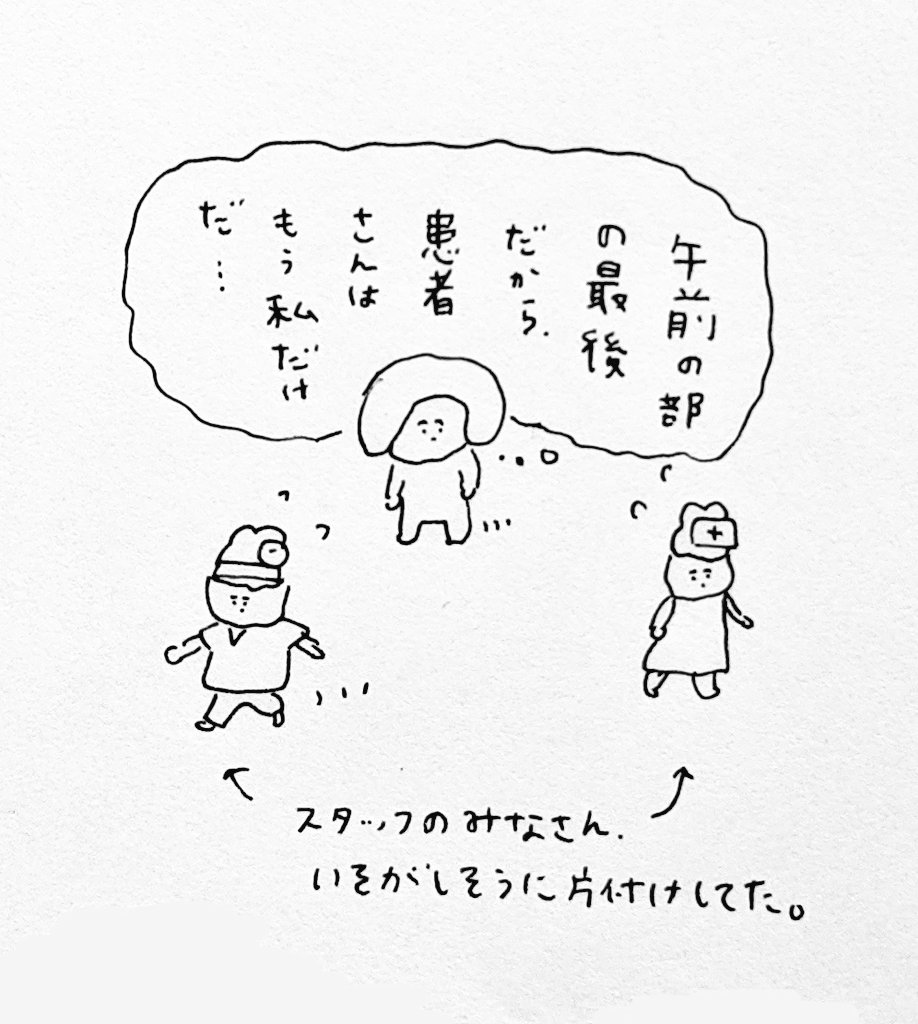 午前の部
の最後
だから、
患者
さんは
もう私だけ
だ…
スタッフのみなさん、
いそがしそうに片付けしてた。